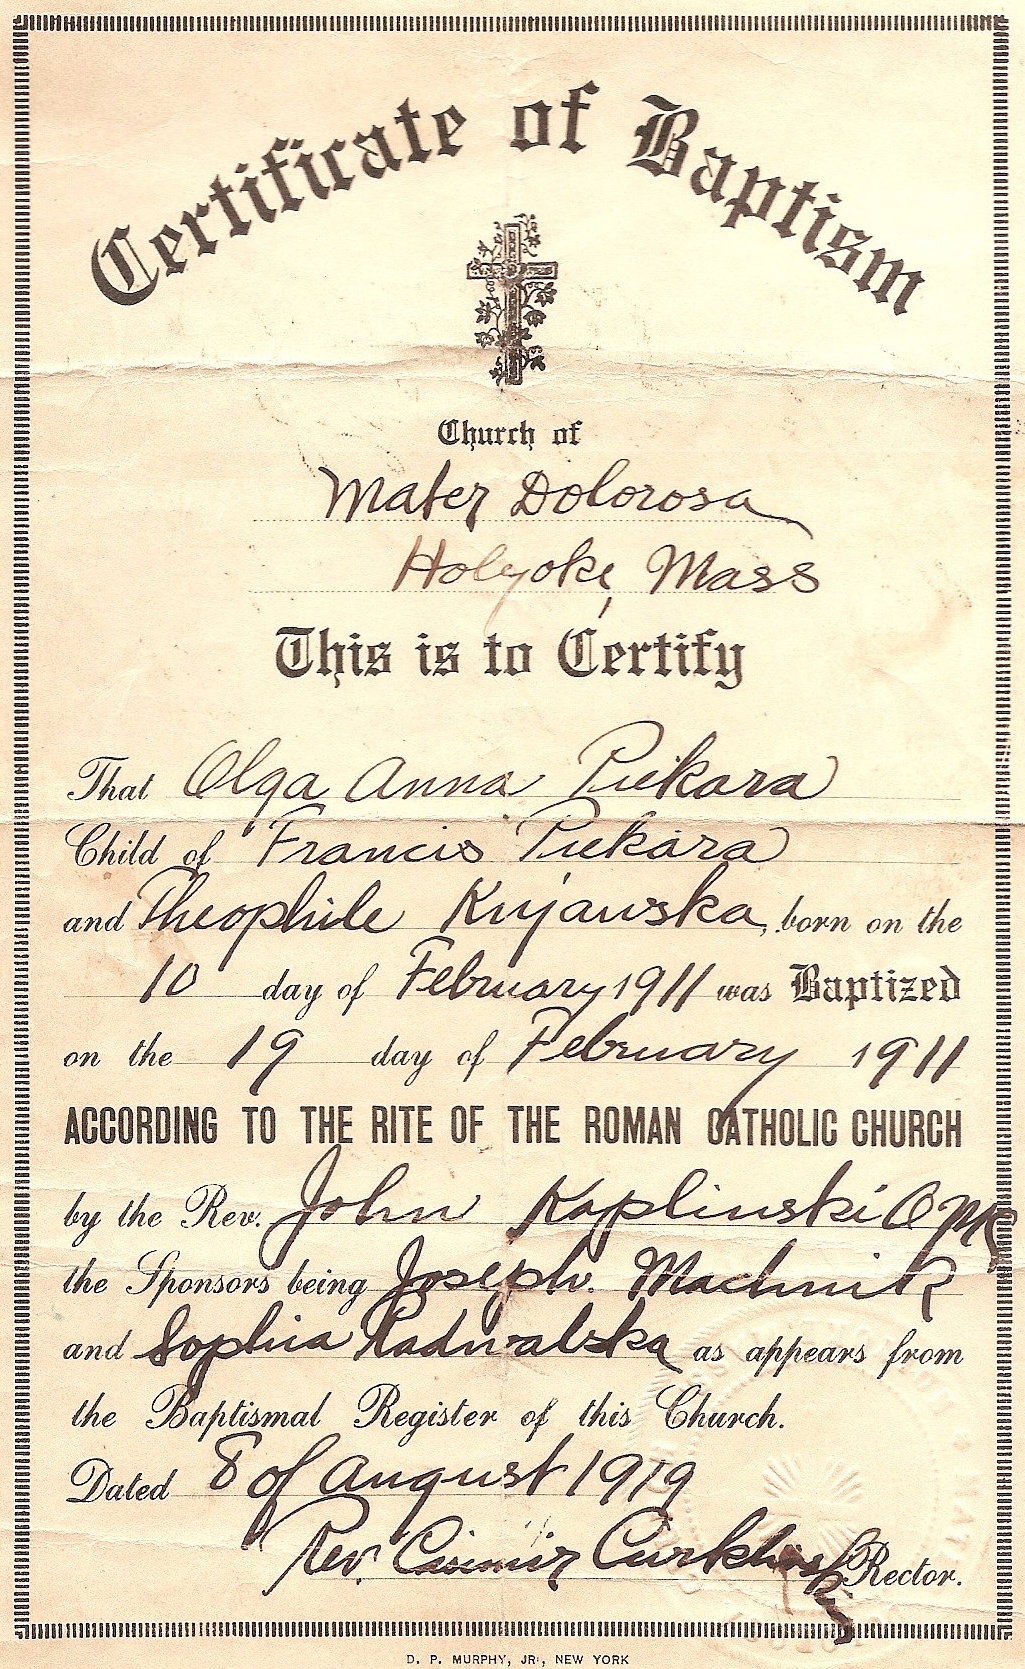 Certificate of Baptism
Church of
Mater Dolorosa
Holyoke, Mass
This is to Certify
That Olga Anna Piekara
Child of Francis Piekara
and Theophile Kujawska, born on the
10 day of February 1911 was Baptized
on the 19 day of February 1911
ACCORDING TO THE RITE OF THE ROMAN CATHOLIC CHURCH
by the Rev. John Kaplinski
the Sponsors being Joseph Machnik
and Sophia as appears from
the Baptismal Register of this Church.
Dated 8 of August 1919
Rev. Casimir Rector.
D. P. MURPHY, JR., NEW YORK